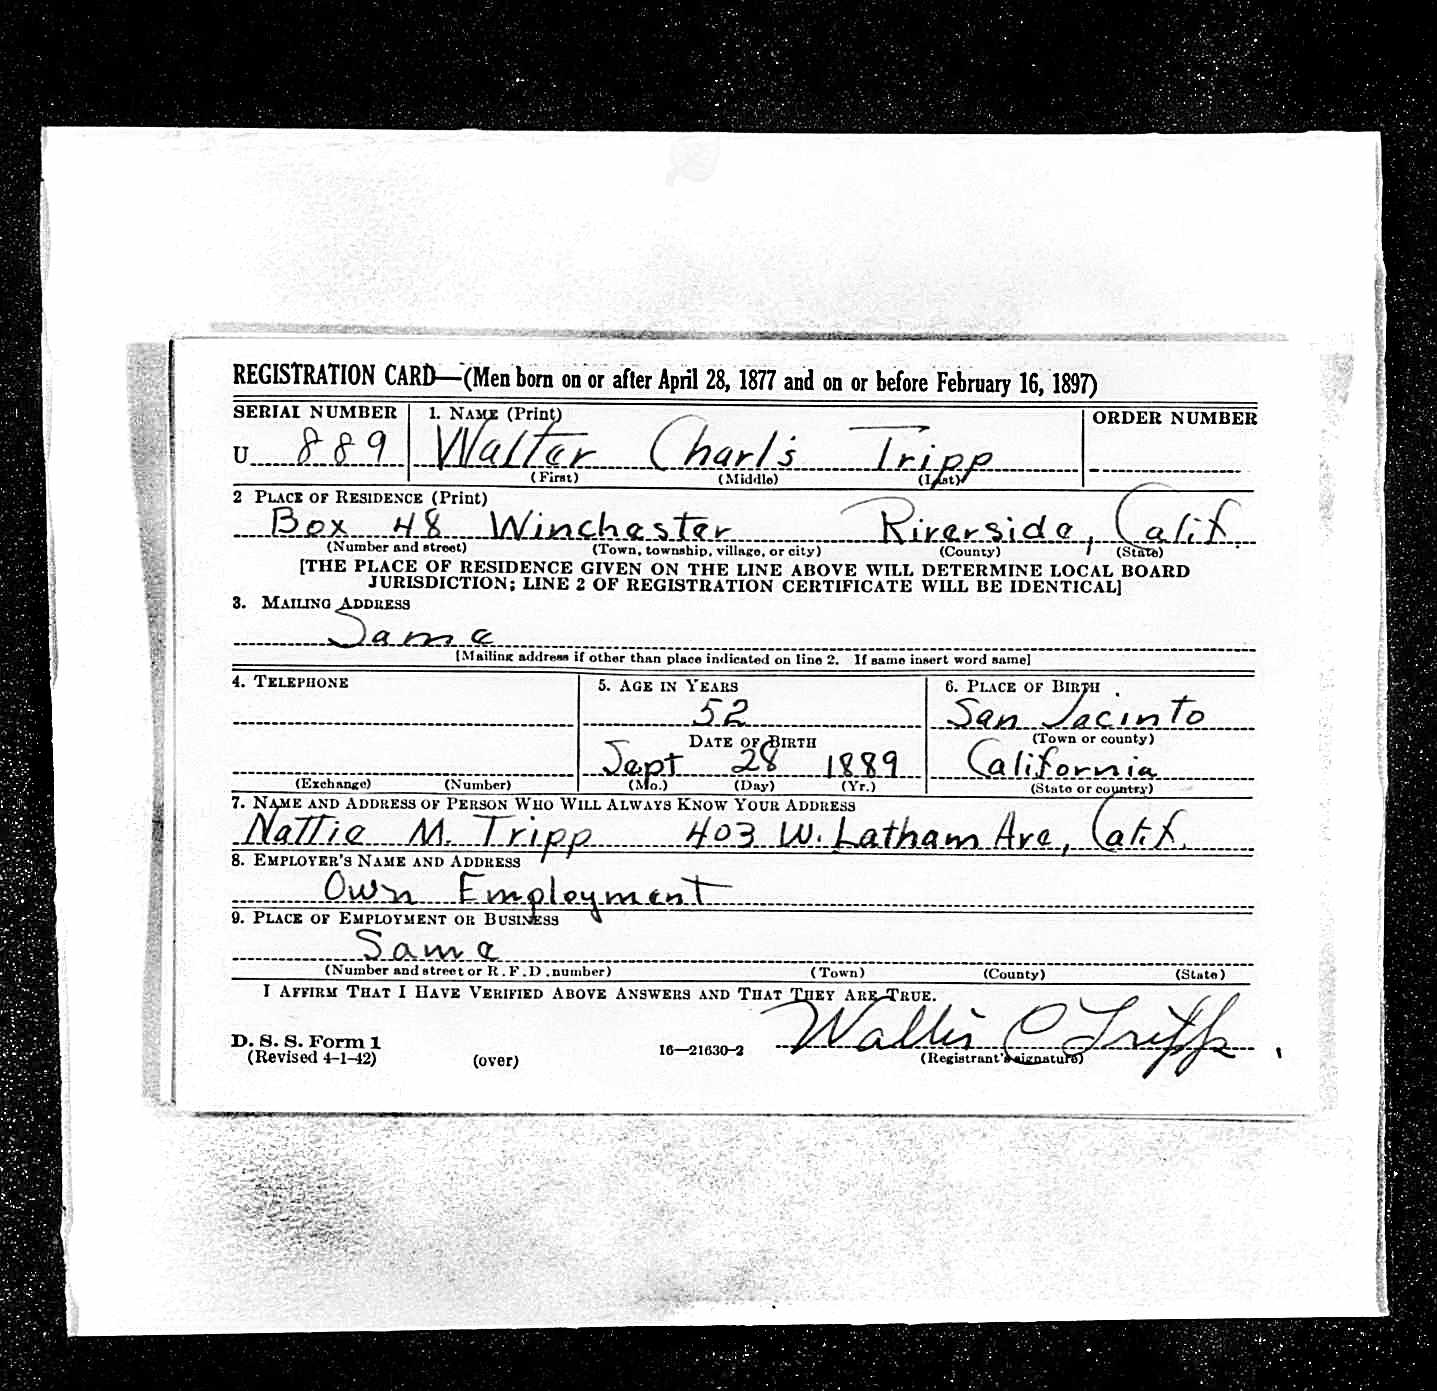 REGISTRATION CARD—(Men born on or after April 28, 1877 and on or before February 16, 1897)
SERIAL NUMBER 1. NAME (Print) ORDER NUMBER
U 889 Walter Charls Tripp
(First) (Middle) (Last)
2 PLACE OF RESIDENCE (Print)
Box 48 Winchester Riverside, Calif.
(Number and street) (Town, township, village, or city) (County) (State)
[THE PLACE OF RESIDENCE GIVEN ON THE LINE ABOVE WILL DETERMINE LOCAL BOARD
JURISDICTION; LINE 2 OF REGISTRATION CERTIFICATE WILL BE IDENTICAL]
3. MAILING ADDRESS
Same
[Mailing address if other than place indicated on line 2. If same insert word same]
4. TELEPHONE 5. AGE IN YEARS 6. PLACE OF BIRTH
52 San Jacinto
DATE OF BIRTH (Town or county)
Sept 28 1889 California
(Exchange) (Number) (Mo.) (Day) (Yr.) (State or country)
7. NAME AND ADDRESS OF PERSON WHO WILL ALWAYS KNOW YOUR ADDRESS
Nettie M. Tripp 403 W. Latham Ave, Calif.
8. EMPLOYER'S NAME AND ADDRESS
Own Employment
9. PLACE OF EMPLOYMENT OR BUSINESS
Same
(Number and street or R. F. D. number) (Town) (County) (State)
I AFFIRM THAT I HAVE VERIFIED ABOVE ANSWERS AND THAT THEY ARE TRUE.
D. S. S. Form 1 Walter C Tripp
(Revised 4-1-42) (over) 16—21630-2 (Registrant's signature)